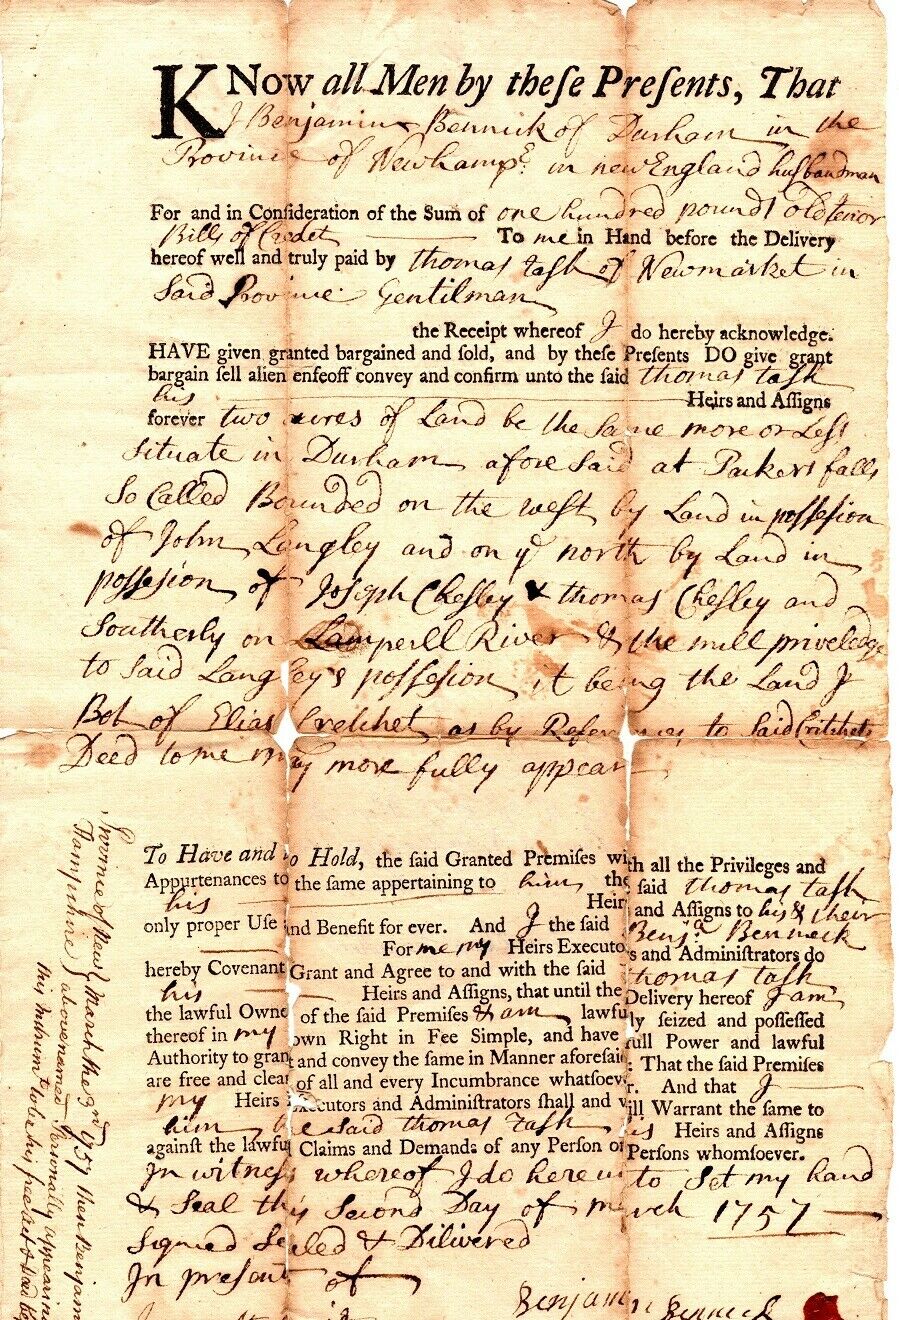 KNow all Men by theſe Preſents, That
I Benjamin Bennick of Durham in the
Province of Newhampe: in new England husbandman
For and in Conſideration of the Sum of one hundred pounds old tenor
Bills of Credet To me in Hand before the Delivery
hereof well and truly paid by thomas task of Newmarket in
Said Province Gentilman
the Receipt whereof I do hereby acknowledge.
HAVE given granted bargained and ſold, and by theſe Preſents DO give grant
bargain ſell alien enfeoff convey and confirm unto the ſaid thomas task
his Heirs and Aſſigns
forever two acres of Land be the Same more or Less
Situate in Durham afore Said at Packers falls
So Called Bounded on the west by Land in possesion
of John Langley and on ye north by Land in
possesion of Joseph Chesley & thomas Chesley and
Southerly on Lamperell River & the mill priveledge
to Said Langley's possesion it being the Land I
Bot of Elias Cretchet as by References to Said Critchets
Deed to me may more fully appear
To Have and to Hold, the ſaid Granted Premiſes with all the Privileges and
Appurtenances to the ſame appertaining to him the ſaid thomas task
his Heirs and Aſſigns to his & their
only proper Uſe and Benefit for ever. And I the ſaid Benja Bennick
For me my Heirs Executors and Adminiſtrators do
hereby Covenant Grant and Agree to and with the ſaid thomas task
his Heirs and Aſſigns, that until the Delivery hereof I am
the lawful Owner of the ſaid Premiſes & am lawfully ſeized and poſſeſſed
thereof in my own Right in Fee Simple, and have full Power and lawful
Authority to grant and convey the ſame in Manner aforeſaid: That the ſaid Premiſes
are free and clear of all and every Incumbrance whatſoever. And that I
my Heirs Executors and Adminiſtrators ſhall and will Warrant the ſame to
him the Said thomas task his Heirs and Aſſigns
againſt the lawful Claims and Demands of any Perſon or Perſons whomſoever.
In witness whereof I do here unto Set my hand
& Seal this Second Day of march 1757
Signed Sealed & Dilivered
In presents of
Benjamin Bennick
Province of New March the 3rd 1757 then Benjam
Hampshire abovenamed Personally appearing
this Instrumt to be his free act &